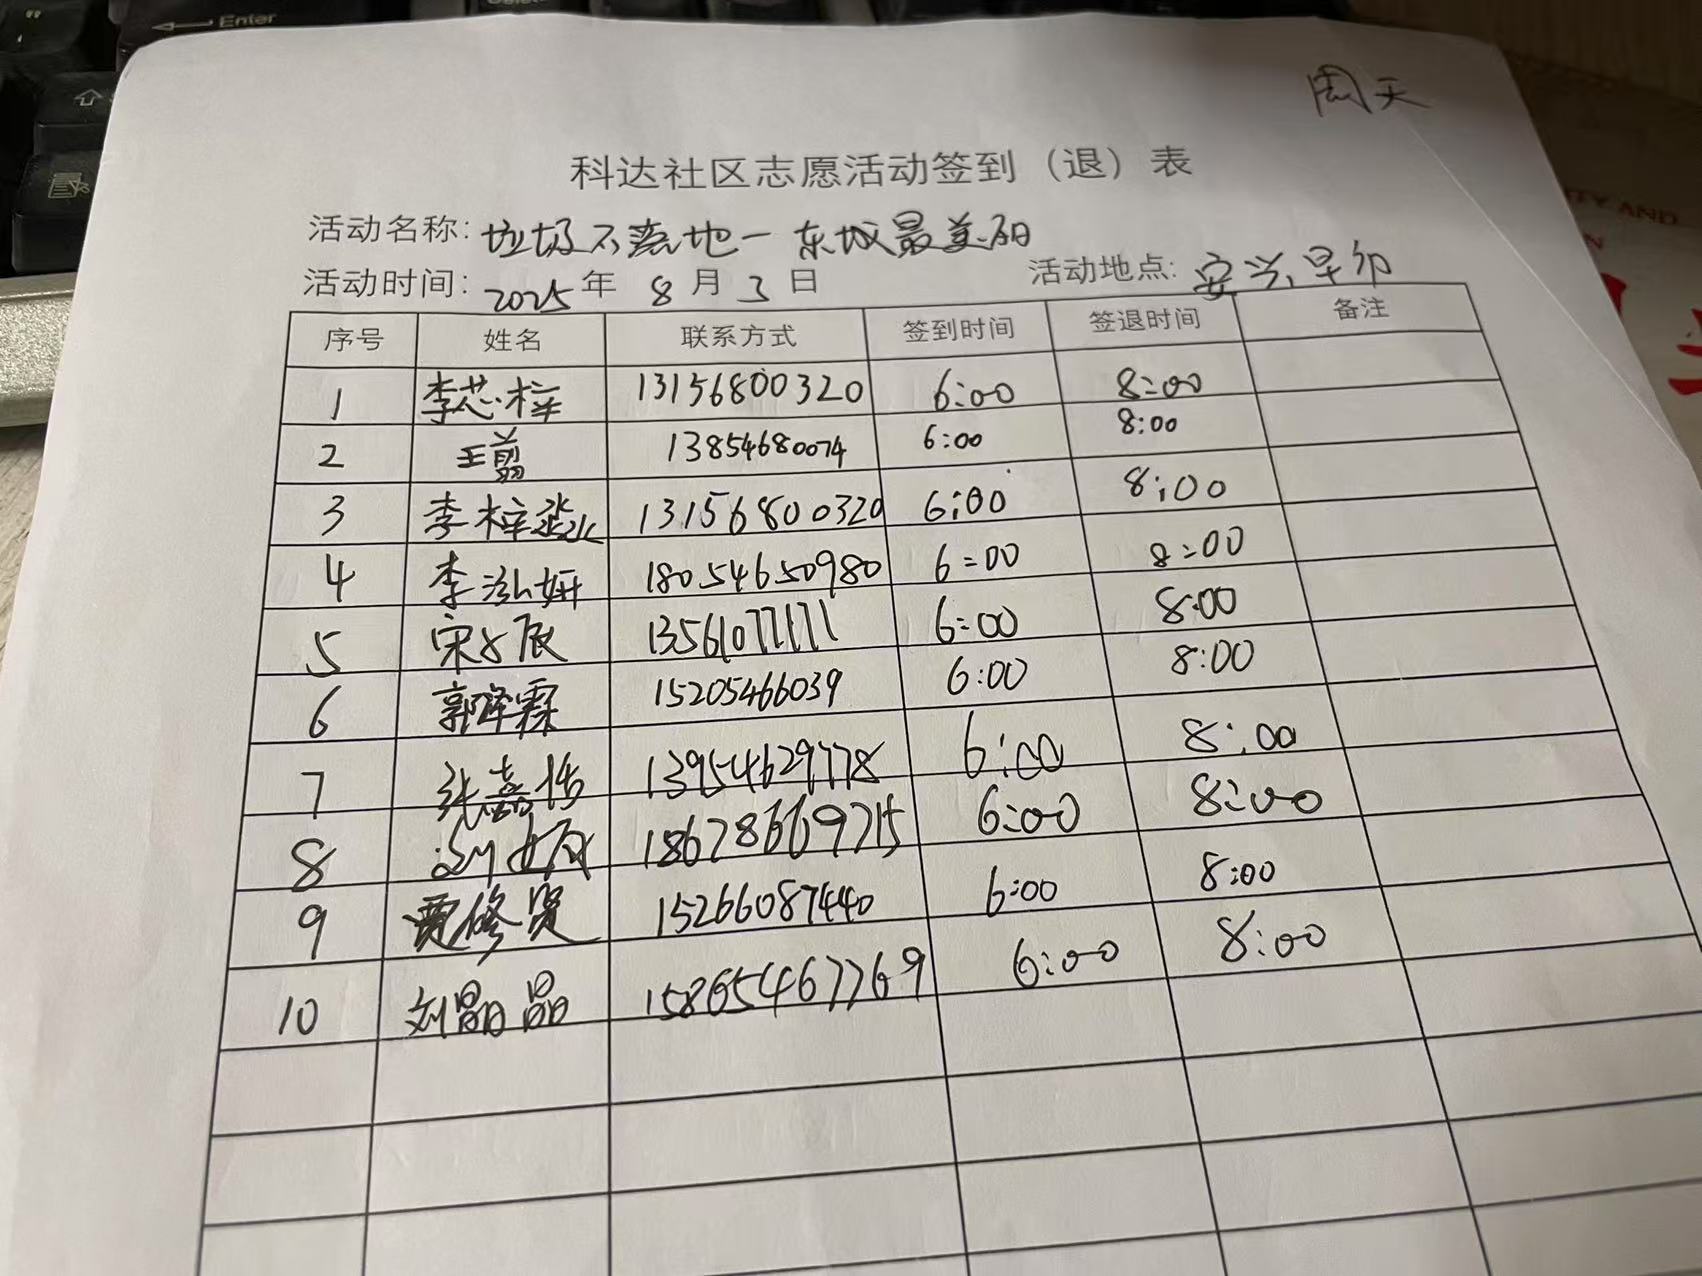 Enter
周天
科达社区志愿活动签到（退）表
活动名称: 垃圾不落地一东城最美丽
活动时间: 2025 年 8 月 3 日 活动地点: 安兴早市
序号 姓名 联系方式 签到时间 签退时间 备注
1 李芯梓 13156800320 6:00 8:00
2 王翦 13854680074 6:00 8:00
3 李梓淼 13156800320 6:00 8:00
4 李泓妍 18054650980 6:00 8:00
5 宋夕辰 13561077171 6:00 8:00
6 郭峰霖 15205466039 6:00 8:00
7 张嘉 13954629778 6:00 8:00
8 18678669715 6:00 8:00
9 贾修贤 15266087440 6:00 8:00
10 刘晶晶 15865467769 6:00 8:00